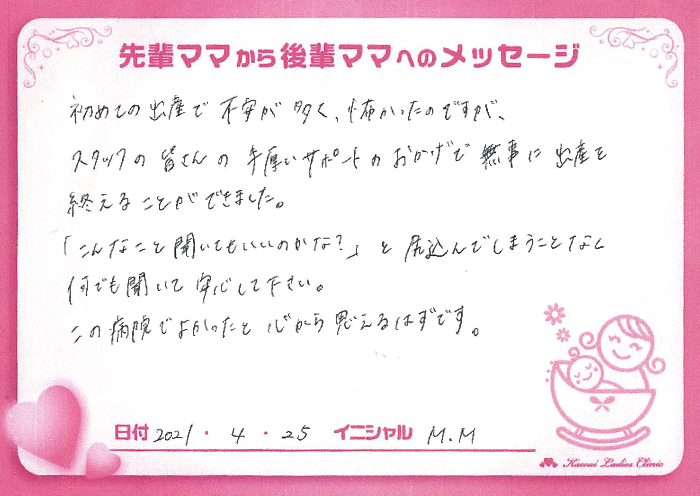 先輩ママから後輩ママへのメッセージ
初めての出産で不安が多く、怖かったのですが、
スタッフの皆さんの手厚いサポートのおかげで無事に出産を
終えることができました。
「こんなこと聞いてもいいのかな？」と尻込んでしまうことなく
何でも聞いて安心して下さい。
この病院でよかったと心から思えるはずです。
日付 2021・4・25 イニシャル M.M
Kawai Ladies Clinic